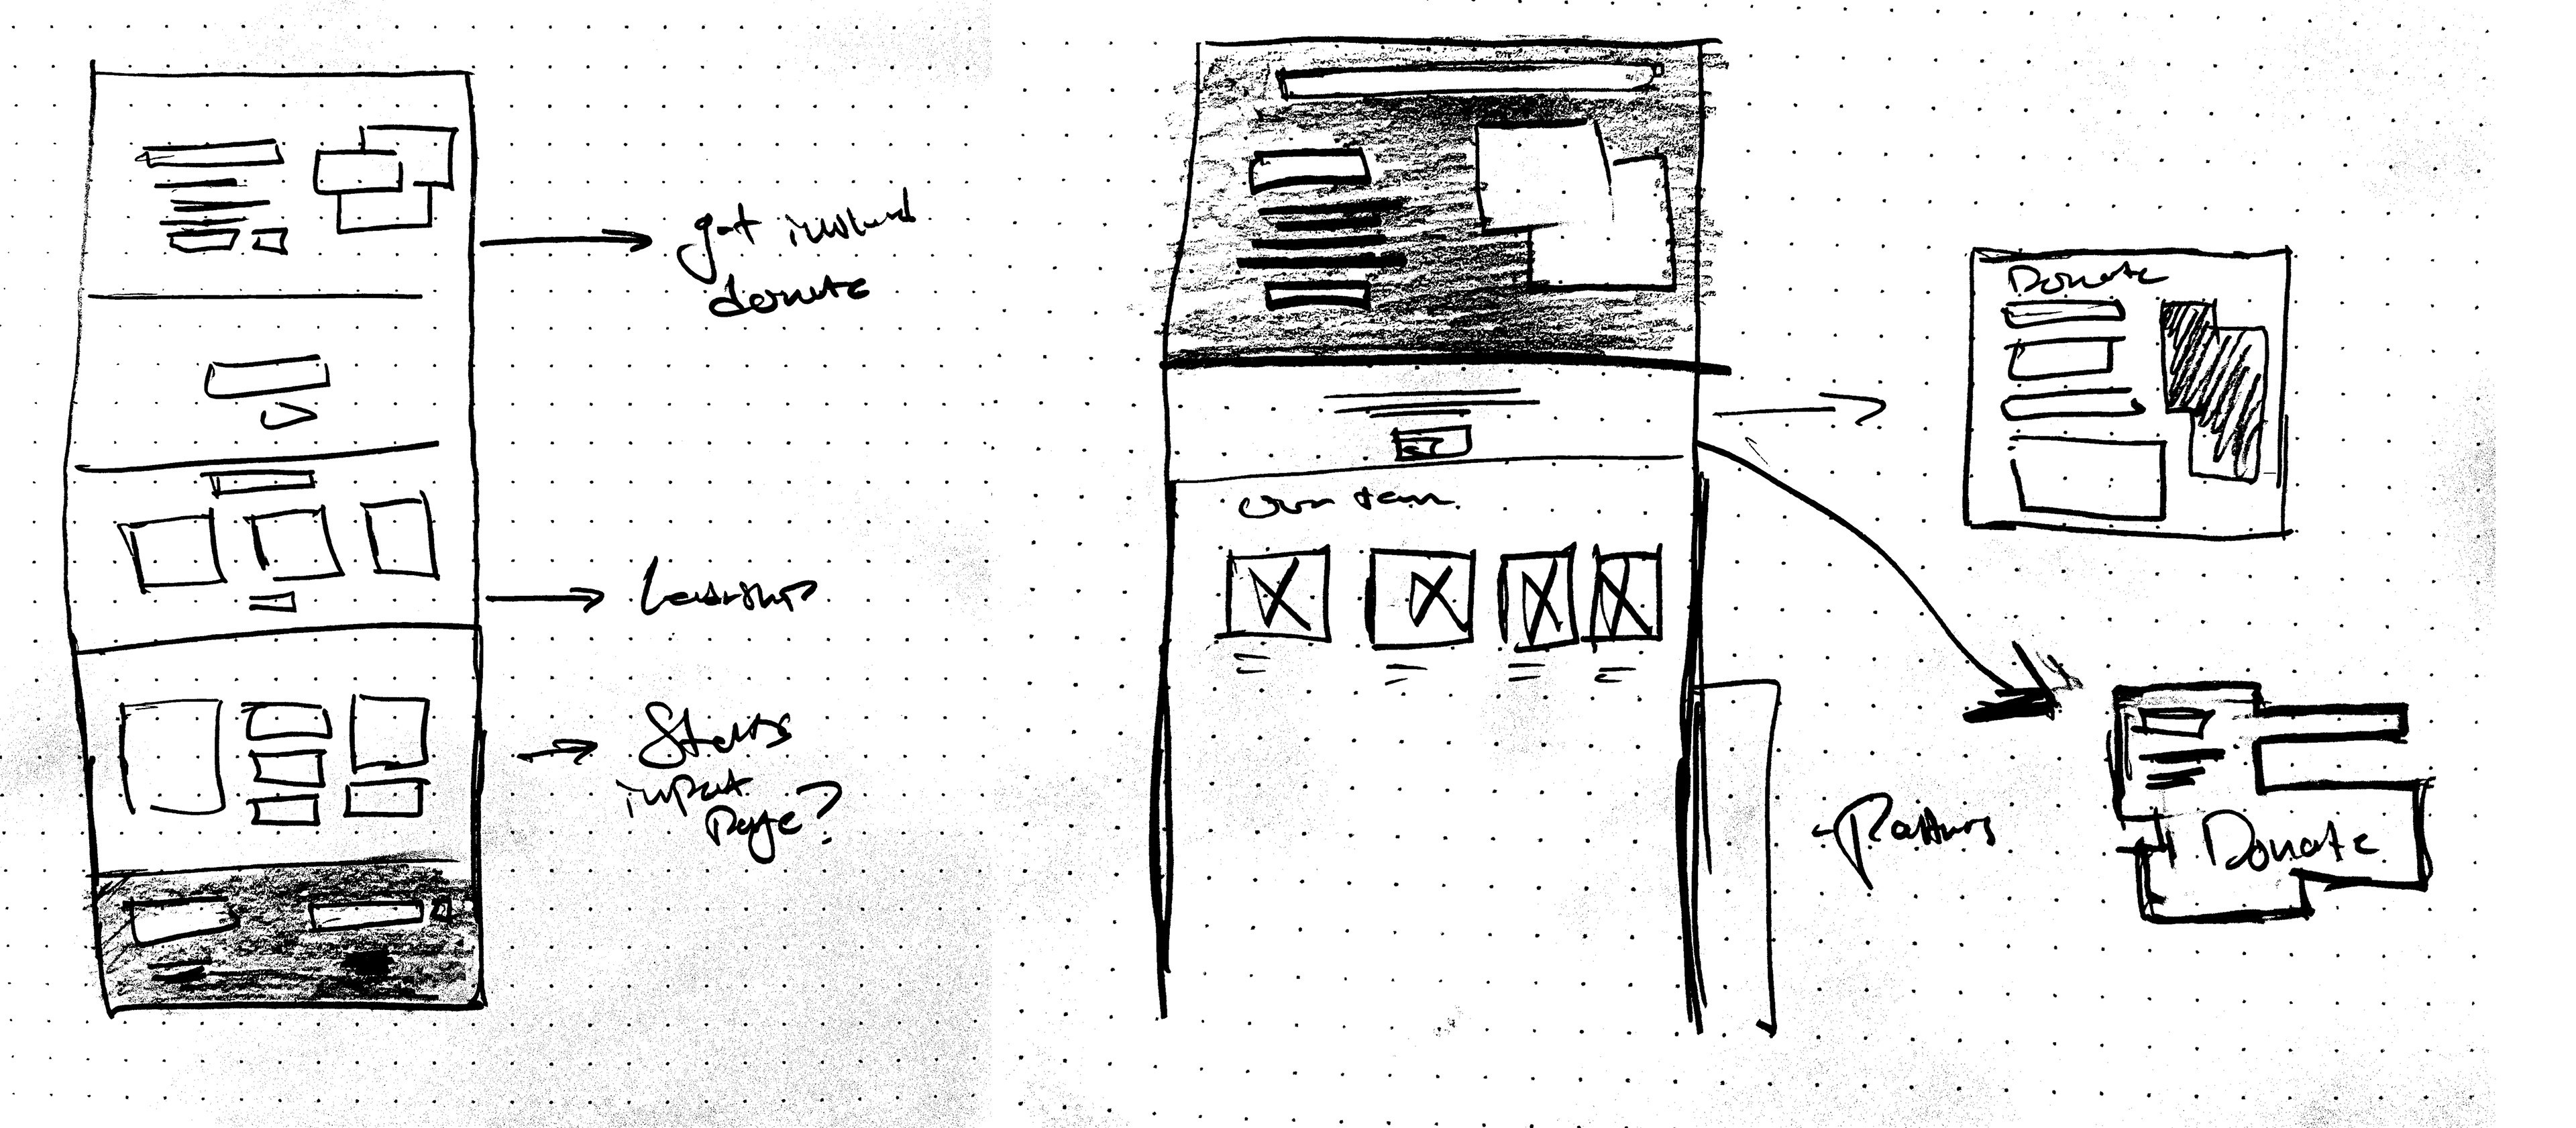 get involved
donate
Leadership
Stats
input
Page?
Our team
Donate
- Partners
Donate